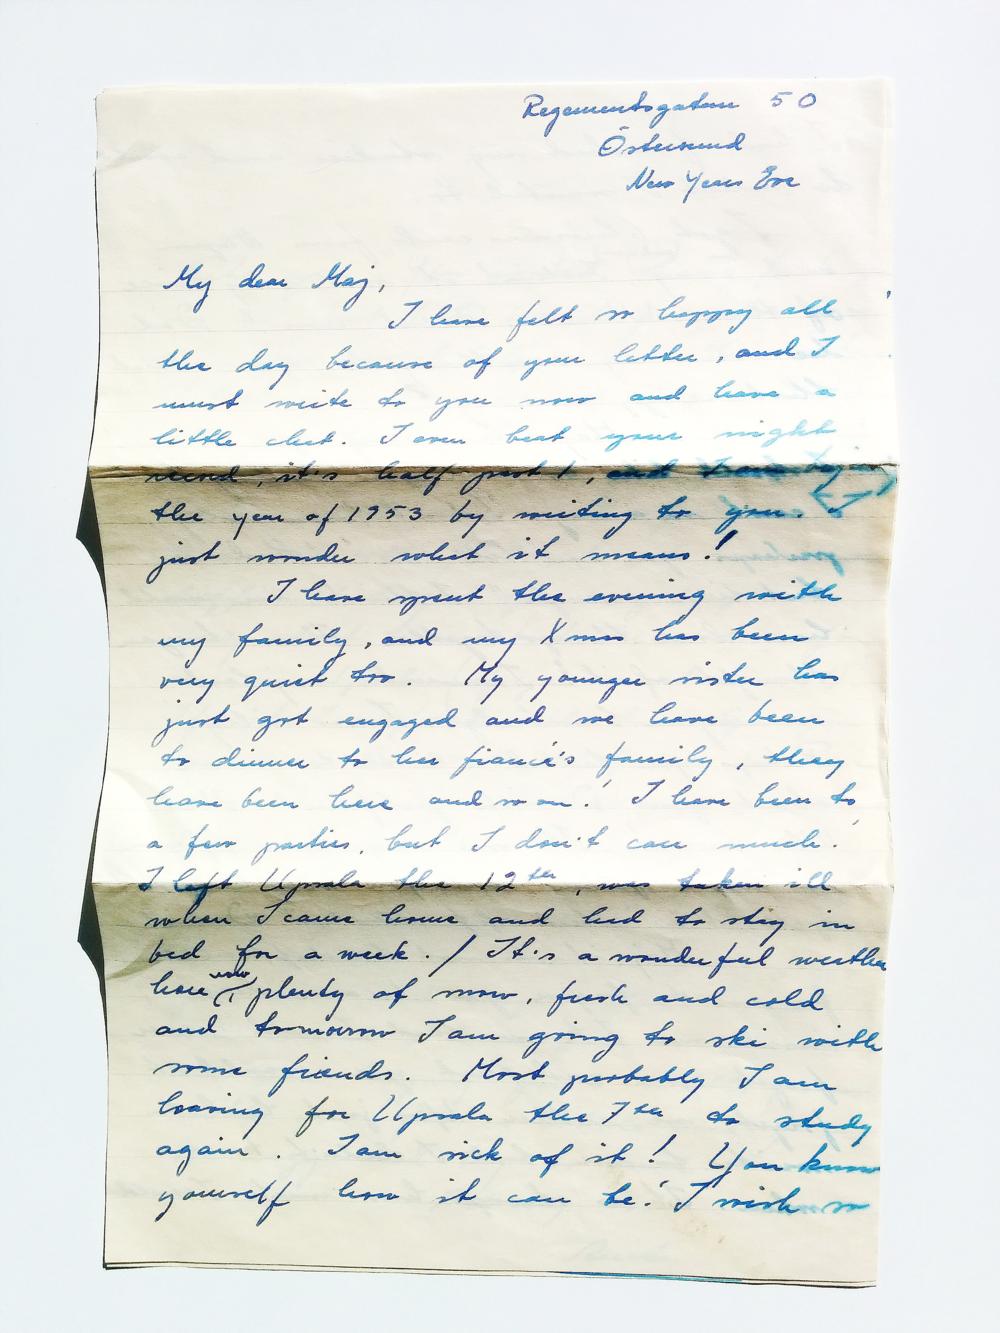 Regementsgatan 50
Östersund
New Years Eve
My dear Maj,
I have felt so happy all
the day because of your letter, and I
must write to you now and have a
little chat. I even beat your night
record, it's half past 1, and I am begin
the year of 1953 by writing to you. I
just wonder what it means!
I have spent the evening with
my family, and my Xmas has been
very quiet too. My younger sister has
just got engaged and we have been
to dinner to her fiancé's family, they
have been here and so on. I have been to
a few parties, but I don't care much.
I left Upsala the 12th, was taken ill
when I came home and had to stay in
bed for a week. / It's a wonderful weather
here now plenty of snow, fresh and cold
and tomorrow I am going to ski with
some friends. Most probably I am
leaving for Upsala the 7th to study
again. I am sick of it! You know
yourself how it can be! I wish so